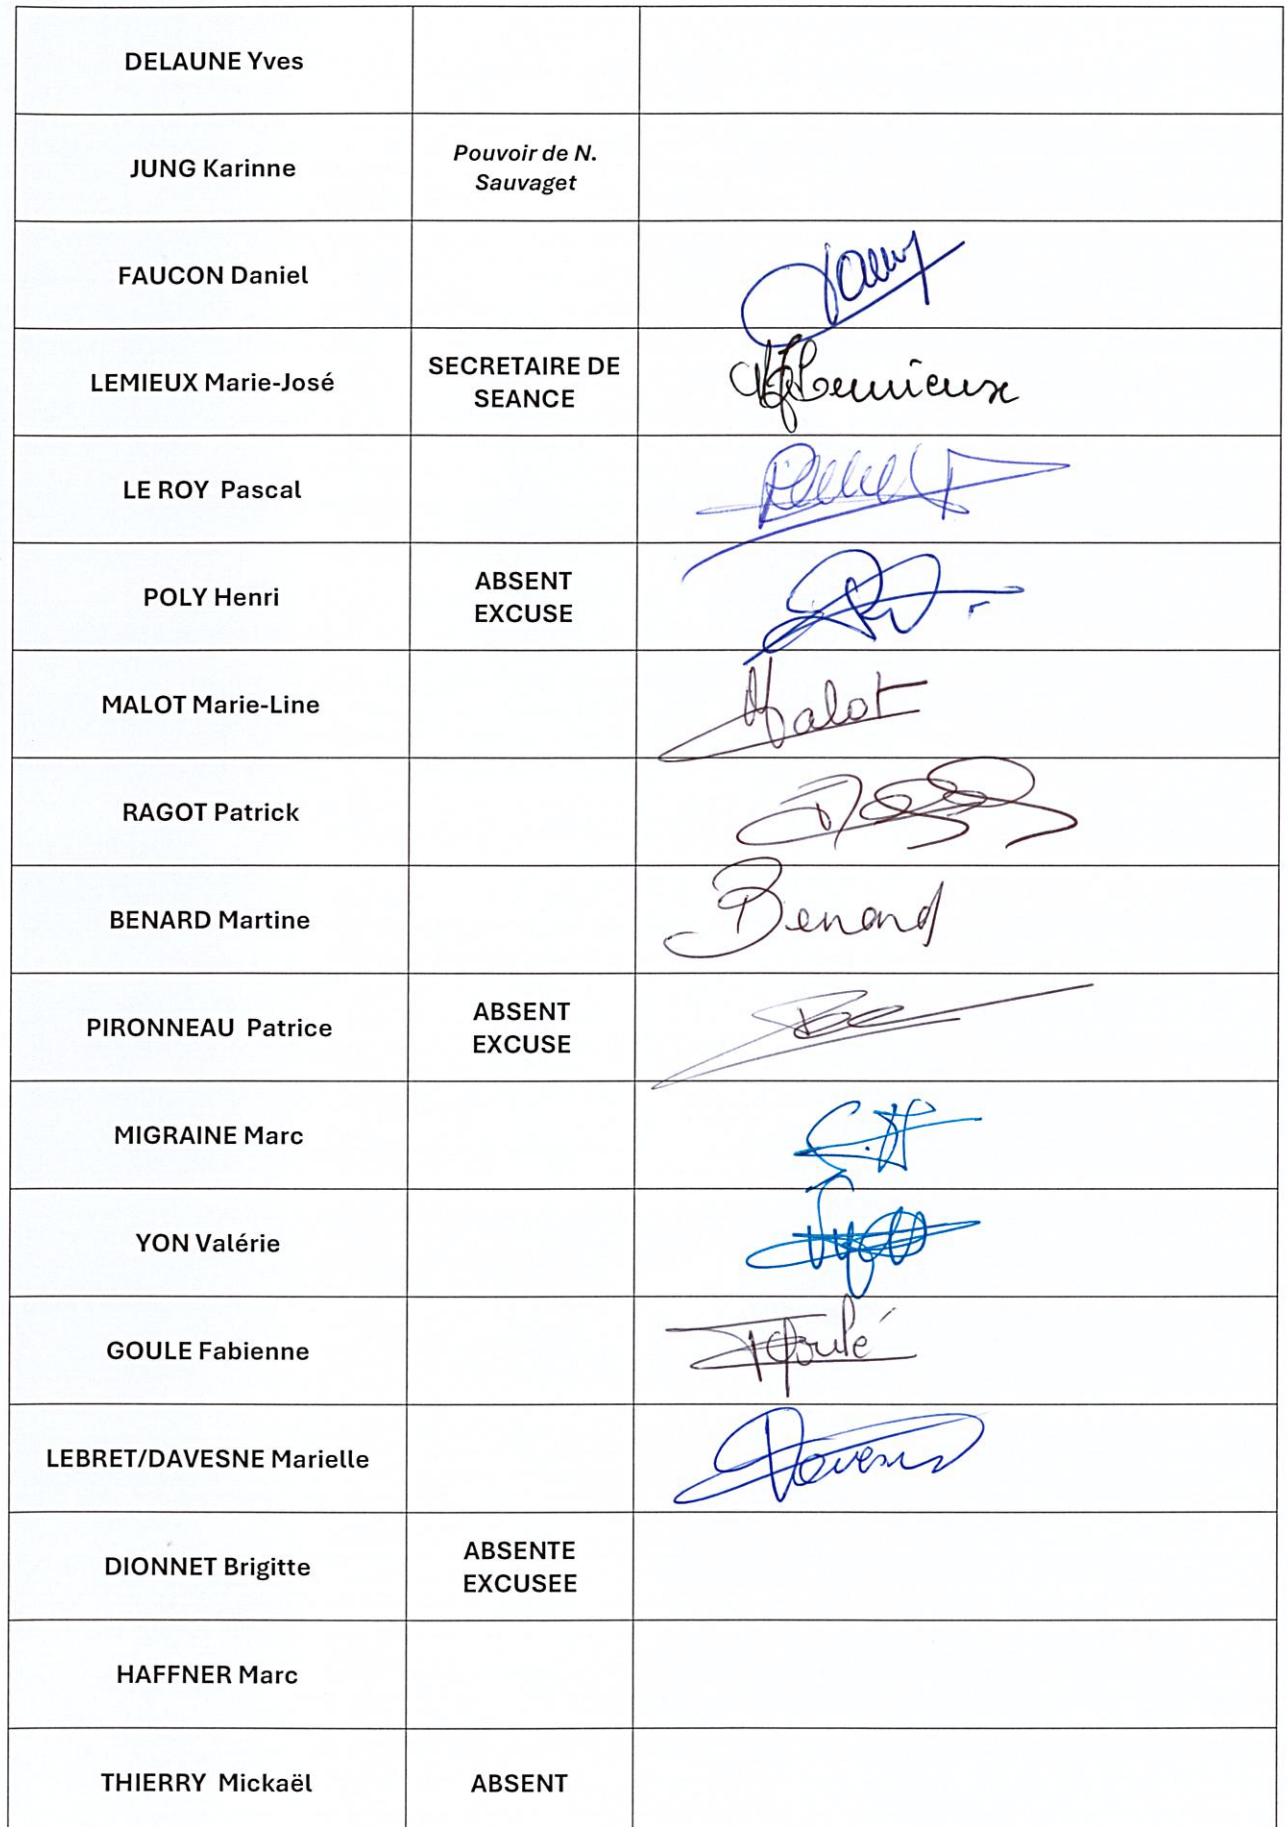 DELAUNE Yves
JUNG Karinne
Pouvoir de N.
Sauvaget
FAUCON Daniel
LEMIEUX Marie-José
SECRETAIRE DE
SEANCE
MJLemieux
LE ROY Pascal
POLY Henri
ABSENT
EXCUSE
MALOT Marie-Line
Malot
RAGOT Patrick
BENARD Martine
Benard
PIRONNEAU Patrice
ABSENT
EXCUSE
MIGRAINE Marc
YON Valérie
GOULE Fabienne
FGoulé
LEBRET/DAVESNE Marielle
DIONNET Brigitte
ABSENTE
EXCUSEE
HAFFNER Marc
THIERRY Mickaël
ABSENT